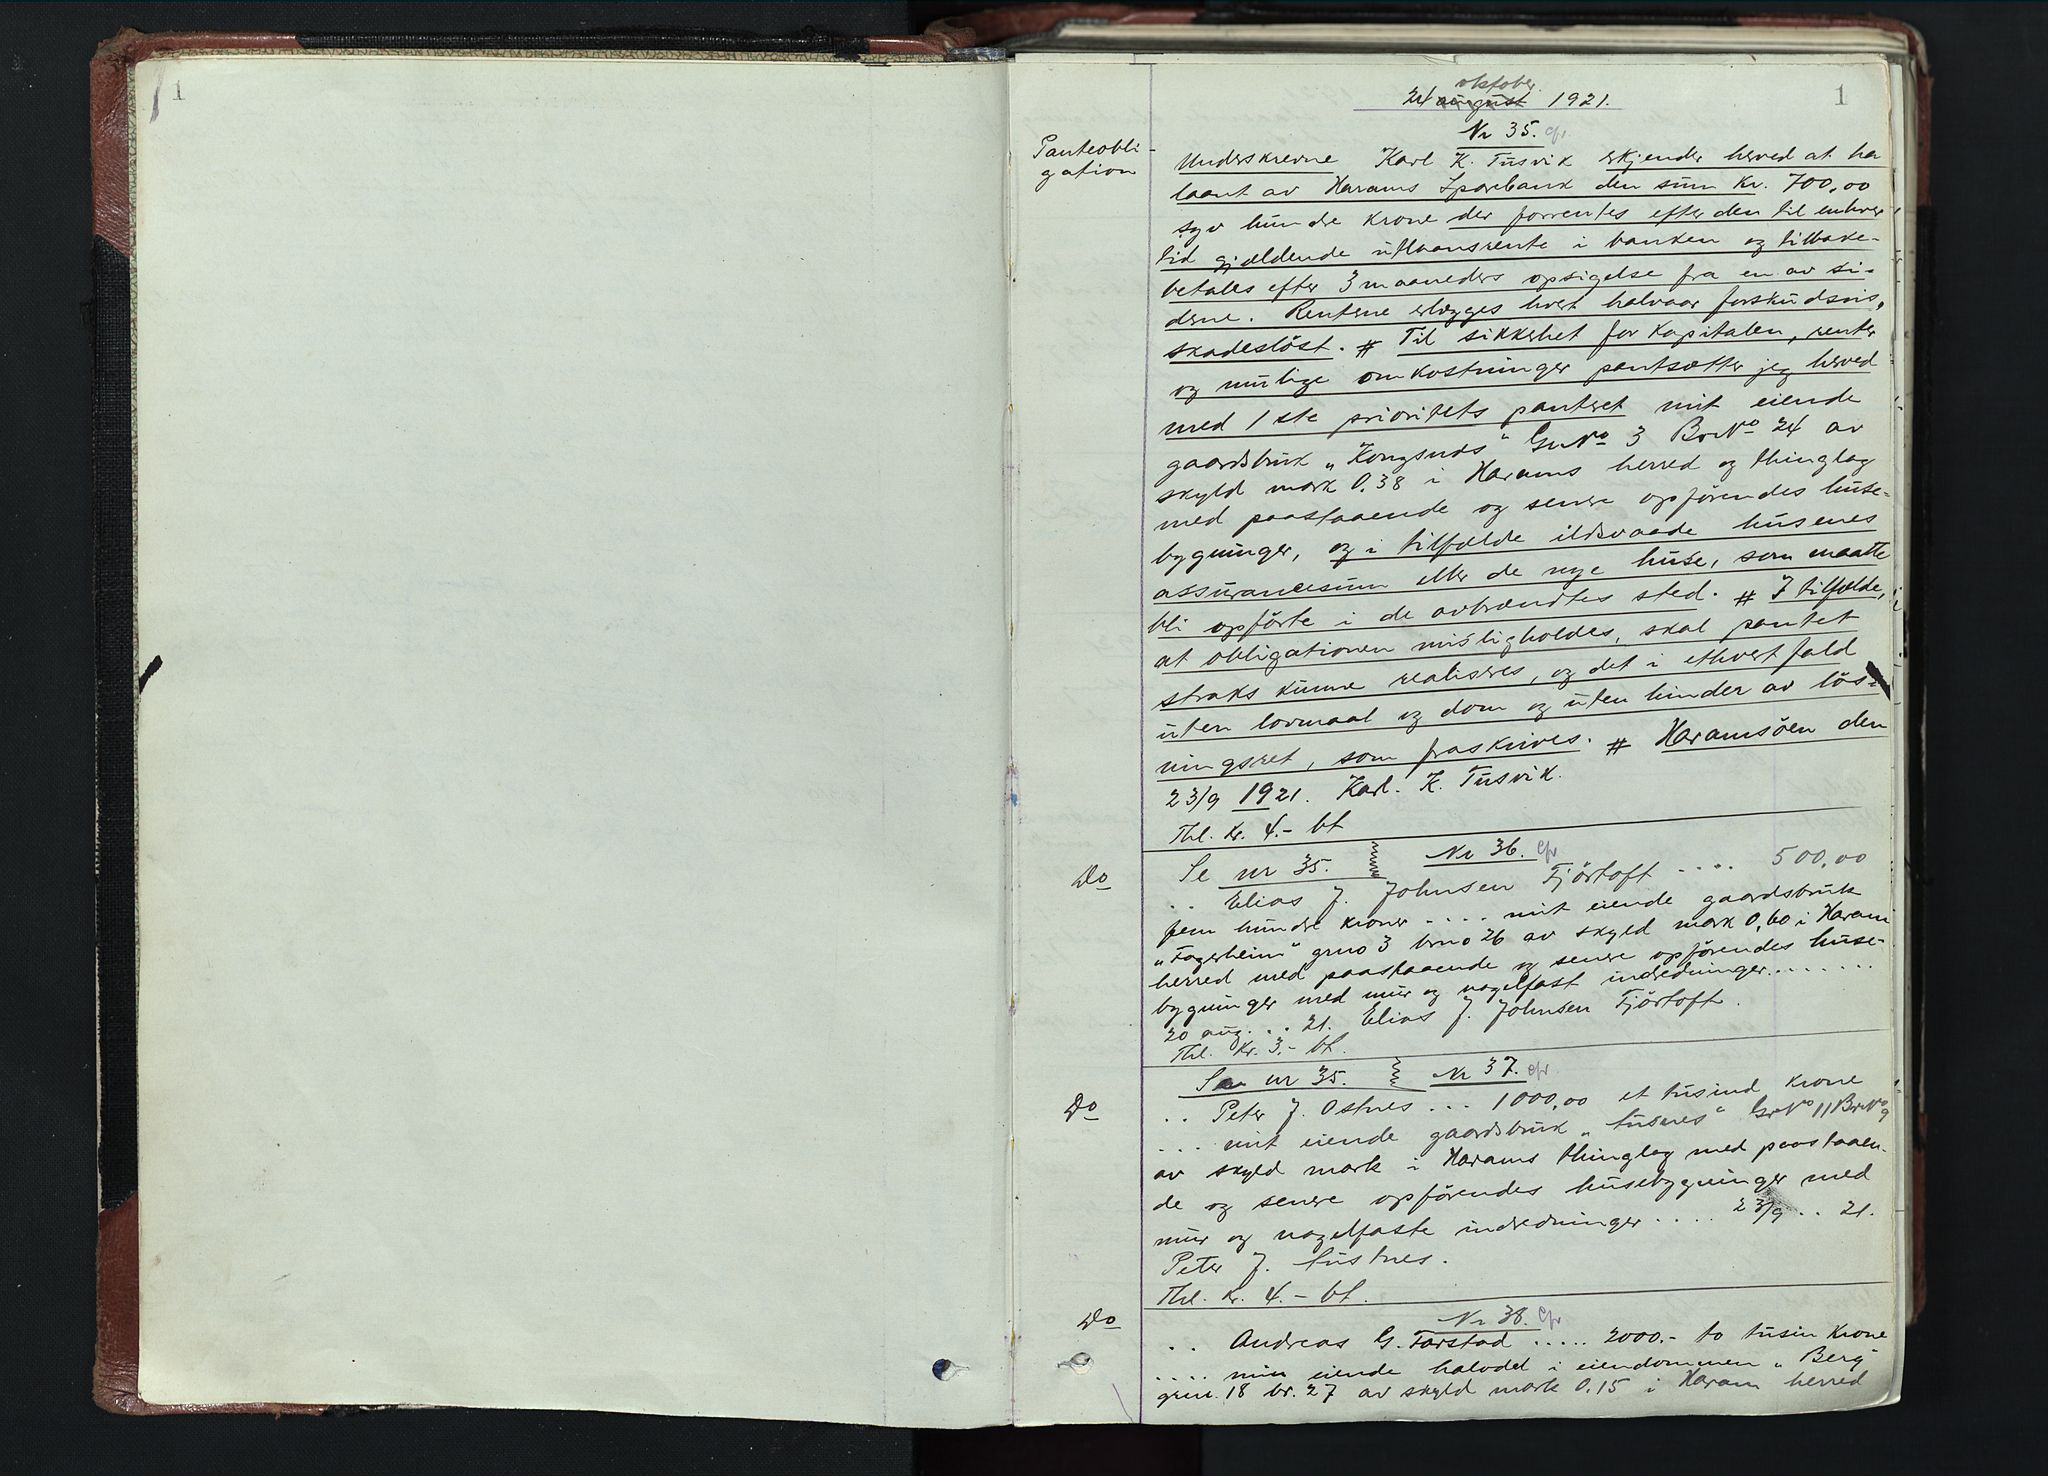 1
1
oktober
24 august 1921.
Nr 35. cfr.
Panteobli-
gation
Underskrevne Karl K. Tusvik erkjender herved at ha
laant av Harams Sparebank den sum Kr. 700,00
syv hundre krone der forrentes efter den til enhver
tid gjældende utlaansrente i banken og tilbake-
betales efter 3 maaneders opsigelse fra en av si-
derne. Renterne erlægges hvert halvaar forskudsvis,
skadesløst. # Til sikkerhet for kapitalen, renter
og mulige omkostninger pantsætter jeg herved
med 1ste prioritets panteret mit eiende
gaardsbruk „Kongsnes" Gr No 3 Br No 24 av
skyld mark 0.38 i Harams herred og thinglag
med paastaaende og senere opførendes huse-
bygninger, og i tilfælde ildsvaade husenes
assurancesum eller de nye huse, som maatte
bli opførte i de avbrændtes sted. # I tilfælde,
at obligationen misligholdes, skal pantet
straks kunne realiseres, og det i ethvert fald
uten lovmaal og dom og uten hinder av løs-
ningsret, som fraskrives. # Haramsøen den
23/9 1921. Karl. K. Tusvik.
Thl. Kr. 4.- bt
Do
Se nr 35. Nr 36. cfr
.. Elias J. Johnsen Fjørtoft .... 500,00
fem hundre kroner .... mit eiende gaardsbruk
„Fagerheim" grno 3 brno 26 av skyld mark 0,60 i Haram
herred med paastaaende og senere opførendes huse-
bygninger med mur og nagelfast indredninger.......
20 aug. .. 21. Elias J. Johnsen Fjørtoft.
Thl. Kr. 3.- bt.
Se nr 35. Nr 37. cfr.
Do
.. Peter J. Ostnes ... 1000,00 et tusind krone
... mit eiende gaardsbruk „ Gr No 11 Br No 9
av skyld mark i Harams thinglag med paastaaen-
de og senere opførendes husebygninger med
mur og nagelfaste indredninger .... 23/9 .. 21.
Peter J.
Thl. Kr. 4.- bt.
Do
Nr 38. cfr
.. Andreas G. Farstad ..... 2000.- to tusin Krone
.... min eiende halvdel i eiendommen „Berg"
grnr. 18 br. 27 av skyld mark 0.15 i Haram herred